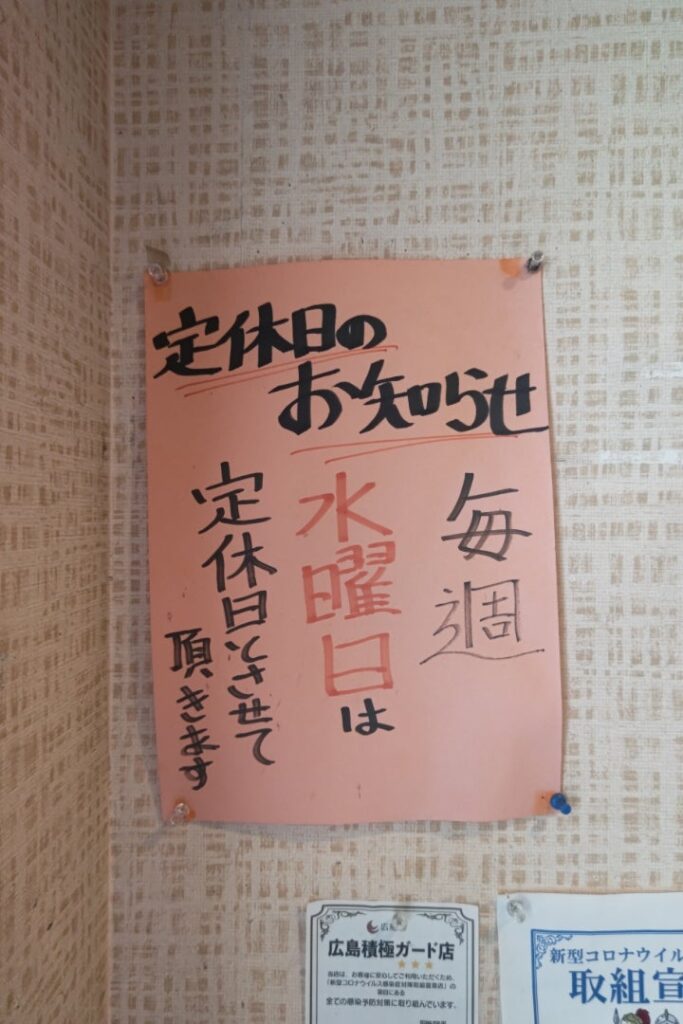 定休日の
お知らせ
毎週
水曜日は
定休日とさせて
頂きます
広島積極ガード店
当店は、お客様に安心してご利用いただくため、
「新型コロナウイルス感染症対策取組宣言店」の
項目にある
全ての感染予防対策に取り組んでいます。
新型コロナウイル
取組宣